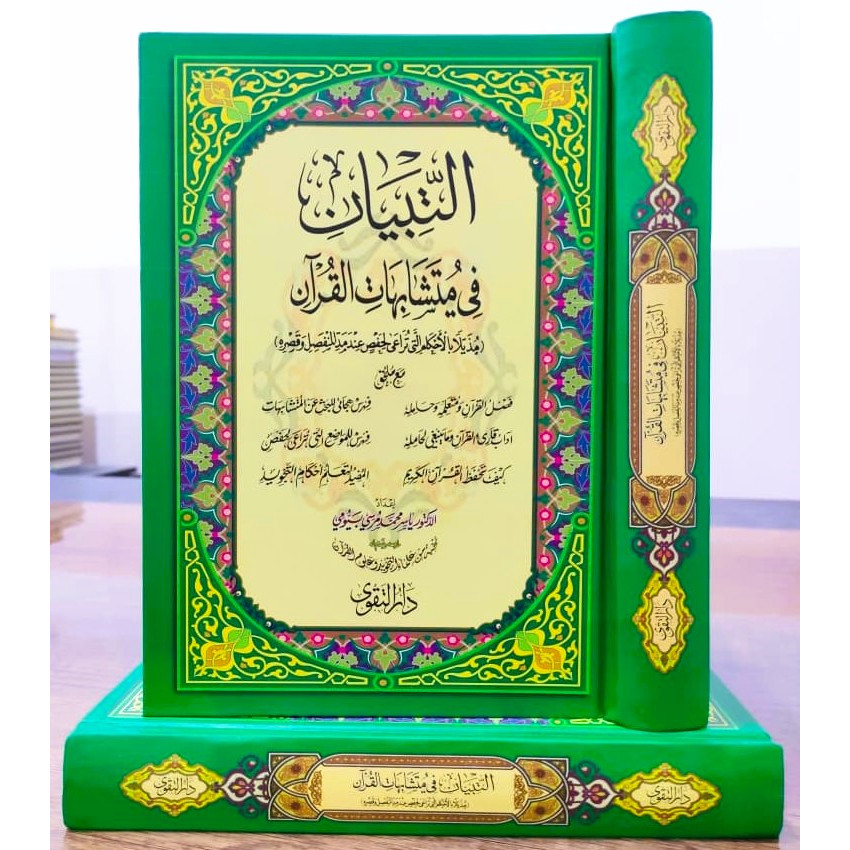 التِّبْيَان
فِي مُتَشَابِهَاتِ القُرْآن
(مُذَيَّلًا بِالأَحْكَامِ الَّتِي تُرَاعَى لِحَفْصٍ عِنْدَ مَدِّ المُنْفَصِل وَقَصْرِه)
مع ملحق
فضل القرآن ومتعلمه وحامله
فهرس هجائي للبحث عن المتشابهات
آداب قارئ القرآن وما ينبغي لحامله
فهرس للمواضع التي تراعى لحفص
كيف تحفظ القرآن الكريم
المفيد لتعلم أحكام التجويد
إعداد
الدكتور ياسر محمد مرسي بيومي
نخبة من علماء التجويد وعلوم القرآن
دار التقوى
دار التقوى
التبيان في متشابهات القرآن
دار التقوى
دار التقوى
التبيان في متشابهات القرآن
(مذيلا بالأحكام التي تراعى لحفص عند مد المنفصل وقصره)
دار التقوى